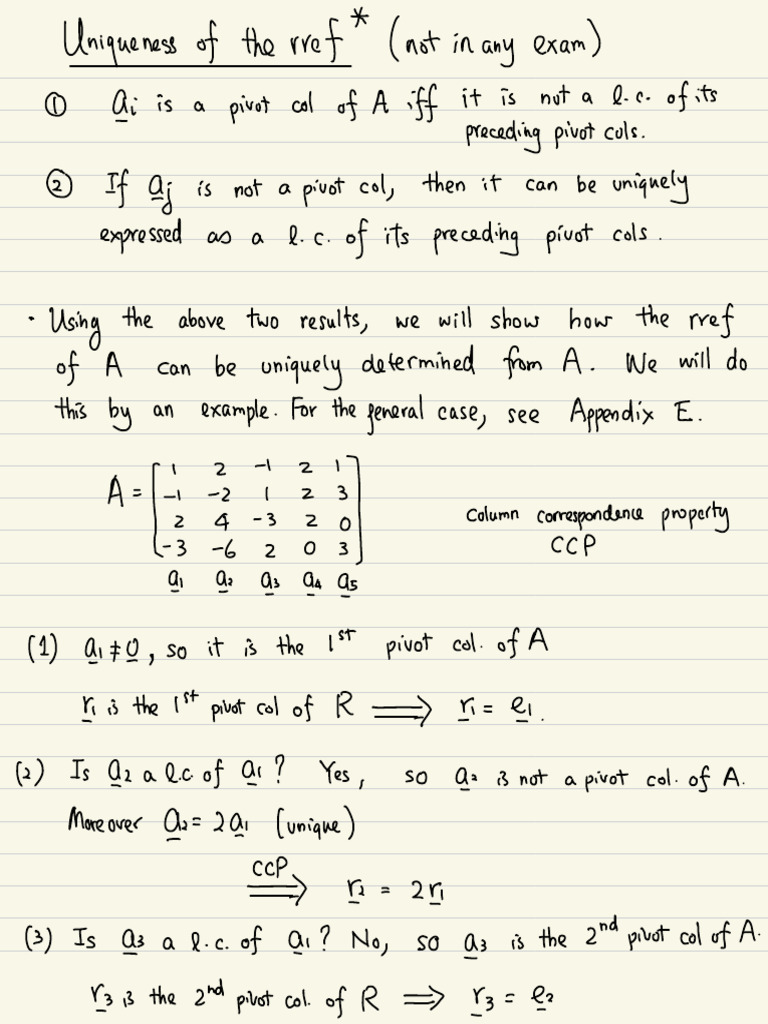 Uniqueness of the rref * (not in any exam)
① a̲i is a pivot col of A iff it is not a l.c. of its
preceding pivot cols.
② If a̲j is not a pivot col, then it can be uniquely
expressed as a l.c. of its preceding pivot cols.
· Using the above two results, we will show how the rref
of A can be uniquely determined from A. We will do
this by an example. For the general case, see Appendix E.
A = [1 2 -1 2 1
-1 -2 1 2 3
2 4 -3 2 0
-3 -6 2 0 3]
a̲1 a̲2 a̲3 a̲4 a̲5
Column correspondence property
CCP
(1) a̲1 ≠ 0̲, so it is the 1st pivot col. of A
r̲1 is the 1st pivot col of R ⟹ r̲1 = e̲1.
(2) Is a̲2 a l.c. of a̲1? Yes, so a̲2 is not a pivot col. of A.
Moreover a̲2 = 2a̲1 (unique)
CCP
⟹ r̲2 = 2r̲1
(3) Is a̲3 a l.c. of a̲1? No, so a̲3 is the 2nd pivot col of A.
r̲3 is the 2nd pivot col. of R ⟹ r̲3 = e̲2